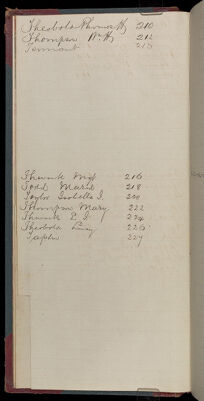 Theobold Thomas H 210
Thompson Wm H 212
Tennant 213
Thwait Miss 216
Todd Maria 218
Taylor Isabella J. 220
Thompson Mary 222
Thwait E. J. 224
Theobold Lucy 226
227